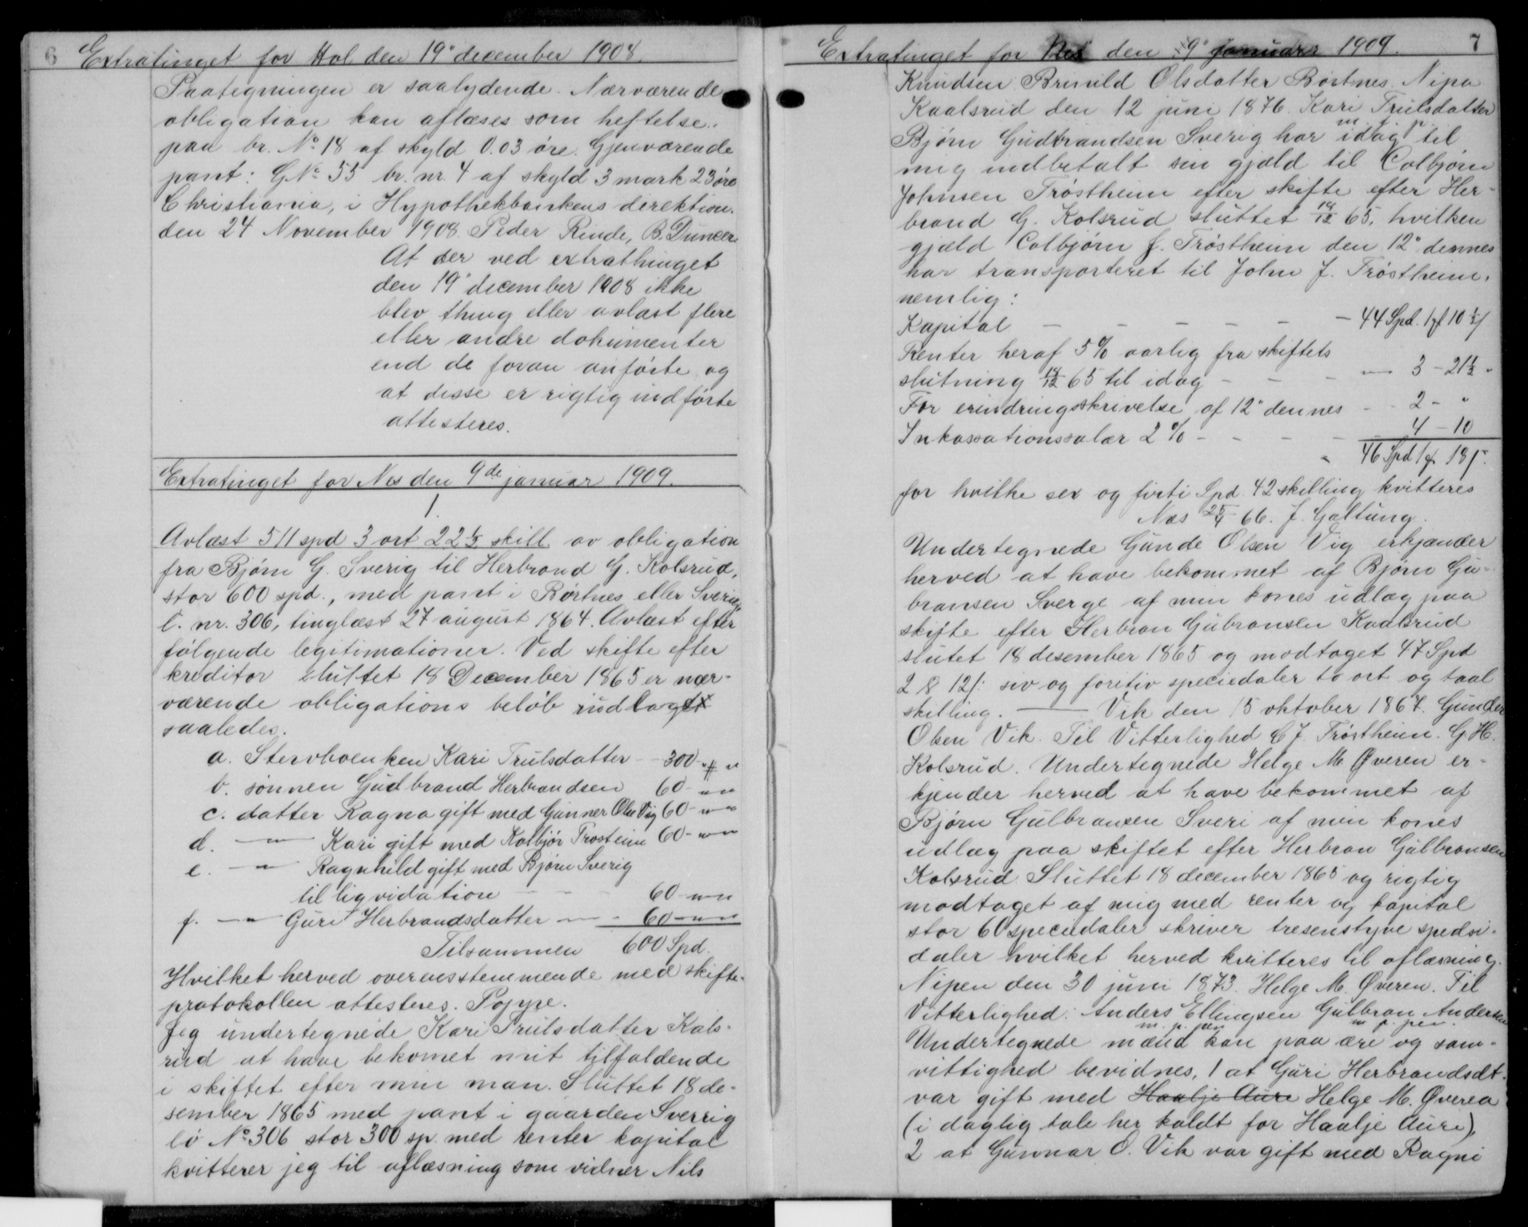 6 Extratinget for Hol den 19' december 1908.
Paategningen er saalydende. Nærværende
obligation kan aflæses som heftelse
paa br. No. 18 af skyld 0.03 øre. Gjenværende
pant: G No. 55 br. nr. 4 af skyld 3 mark 23 øre
Christiania, i Hypothekbankens derektion.
den 24 November 1908. Peder Rinde, B. Duncer
At der ved extrathinget
den 19' december 1908 ikke
blev thing eller avlæst flere
eller andre dokumenter
end de foran anførte og
at desse er rigtig indførte
attesteres.
Extratinget for Nes den 9de januar 1909.
1.
Avlæst 511 spd 3 ort 22 1/2 skill. av obligation
fra Bjørn G. Sverig til Herbrand G. Kolsrud,
stor 600 spd., med pant i Børtnes eller Sverig,
l. nr. 306, tinglæst 27 august 1864. Avlæst efter
følgende legitimationer. Ved skifte efter
kreditor sluttet 18 December 1865 er nær-
værende obligations beløb indlagt
saaledes.
a. Stervboenken Kari Trulsdatter - 300 - " "
b. sønnen Gudbrand Herbrandsen 60 - " "
c. datter Ragna gift med Gunner Ols Vig 60 - " "
d. - " - Kari gift med Kolbjør Trosteim 60 - " "
e. - " - Ragnhild gift med Bjørn Sverig
til ligvidation - - - 60 - " "
f. - " - Guri Herbrandsdatter - - 60 - " "
Tilsammen 600 Spd.
Hvilket herved overensstemmende med skifte-
protokollen attesteres. Poppe.
Jeg undertegnede Kari Trulsdatter Kals-
rud at have bekomet mit tilfaldende
i skiftet efter min man. Sluttet 18 de-
sember 1865 med pant i gaarden Sverrig
lø No. 306 stor 300 sp. med renter kapital
kvitterer jeg til aflæsning som vidner Nils
Extratinget for Nes den 9' januar 1909. 7
Knudsen Brunild Olsdatter Børtnes. Nipa
Kaalsrud den 12 juni 1876. Kari Trulsdatter
m. f. p.
Bjørn Gudbrandsen Sverig har idag til
mig indbetalt sin gjæld til Colbjørn
Johnsen Trøstheim efter skifte efter Her-
brand G. Kolsrud sluttet 18/12 65, hvilken
gjæld Colbjørn J. Trøstheim den 12' dennes
har transporteret til John J. Trøstheim,
nemlig:
Kapital - - - - - - 44 Spd. 1 ₰ 10 1/2 /
Renter heraf 5% aarlig fra skiftets
slutning 18/12 65 til idag - - - - 3 - 21 1/2 "
For erindringsskrivelse af 12' dennes - - 2 - "
Inkassationssalær 2% - - - - - 4 - 10
" 46 Spd 1 ₰ 18 /.
for hvilke sex og firti Spd. 42 skilling kvitteres
Næs 25/4 66. J. Galtung.
Undertegnede Gunde Olsen Vig erkjænder
herved at have bekommet af Bjørn Gu-
bransen Sverge af min kones udlæg paa
skifte efter Herbran Gubransen Kaalsrud
slutet 18 desember 1865 og modtaget 47 Spd
2 ₰ 12 /: syv og foretiv speciedaler to ort og taal
skilling. — Vik den 15 oktober 1867. Gunder
Olsen Vik. Til Vitterlighed C. J. Trøstheim. G. H.
Kolsrud. Undertegnede Helge M. Øveren er-
kjender herved at have bekommet af
Bjørn Gulbransen Sveri af min kones
udlæg paa skiftet efter Herbran Gulbransen
Kolsrud. Sluttet 18 december 1865 og rigtig
modtaget af mig med renter og kapital
stor 60 speciedaler skriver tresenstyve spedsi-
daler hvilket herved kvitteres til aflæsning.
Nipen den 30 juni 1873. Helge M. Øveren. Til
Vitterlighed: Anders Ellingsen Gulbran Andersen
m. p. pen m. p. pen.
Undertegnede mænd kan paa ære og sam-
vittighed bevidnes, 1 at Guri Herbrandsdt.
var gift med Haalje Aure Helge M. Øveren
(i daglig tale her kaldt for Haalje Aure),
2 at Gunnar O. Vik var gift med Ragni